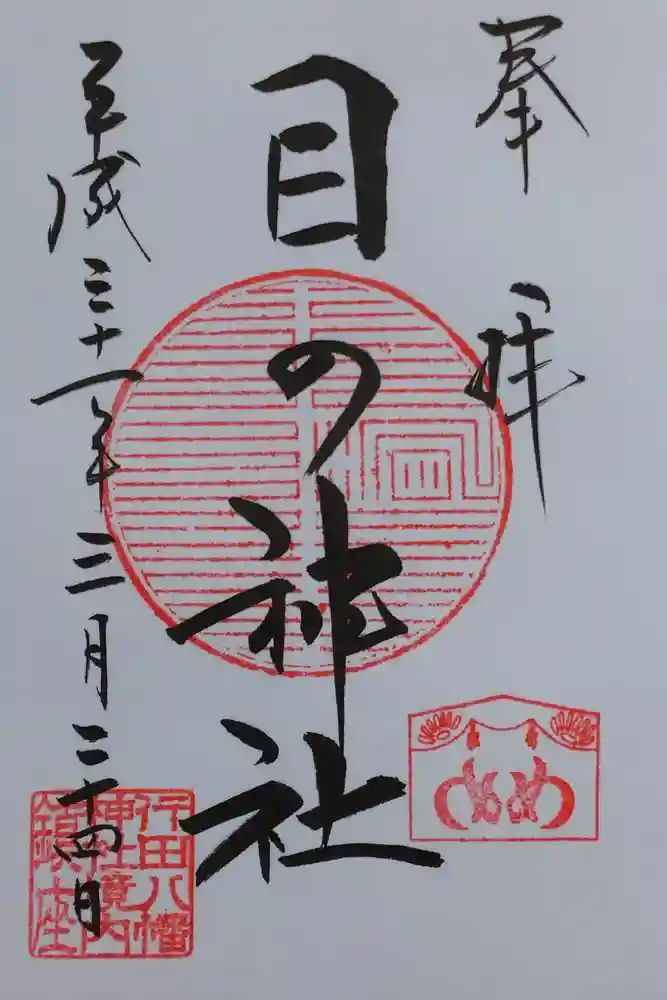 奉拝
目の神社
平成三十一年三月二十四日
行田八幡
神社境内
鎮座